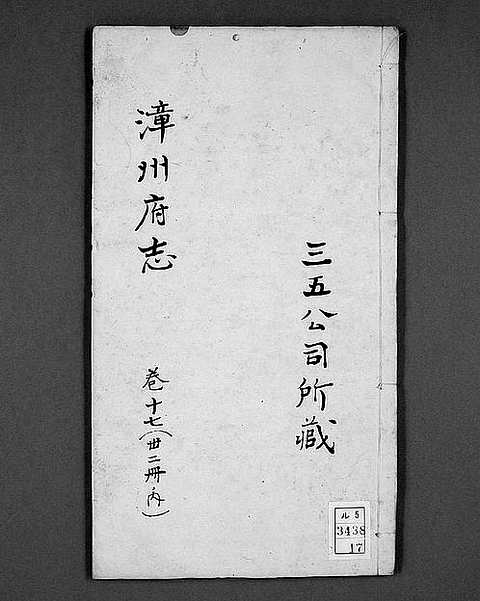 三五公司所藏
漳州府志
巻十七(卅二冊内)
ル5
3438
17